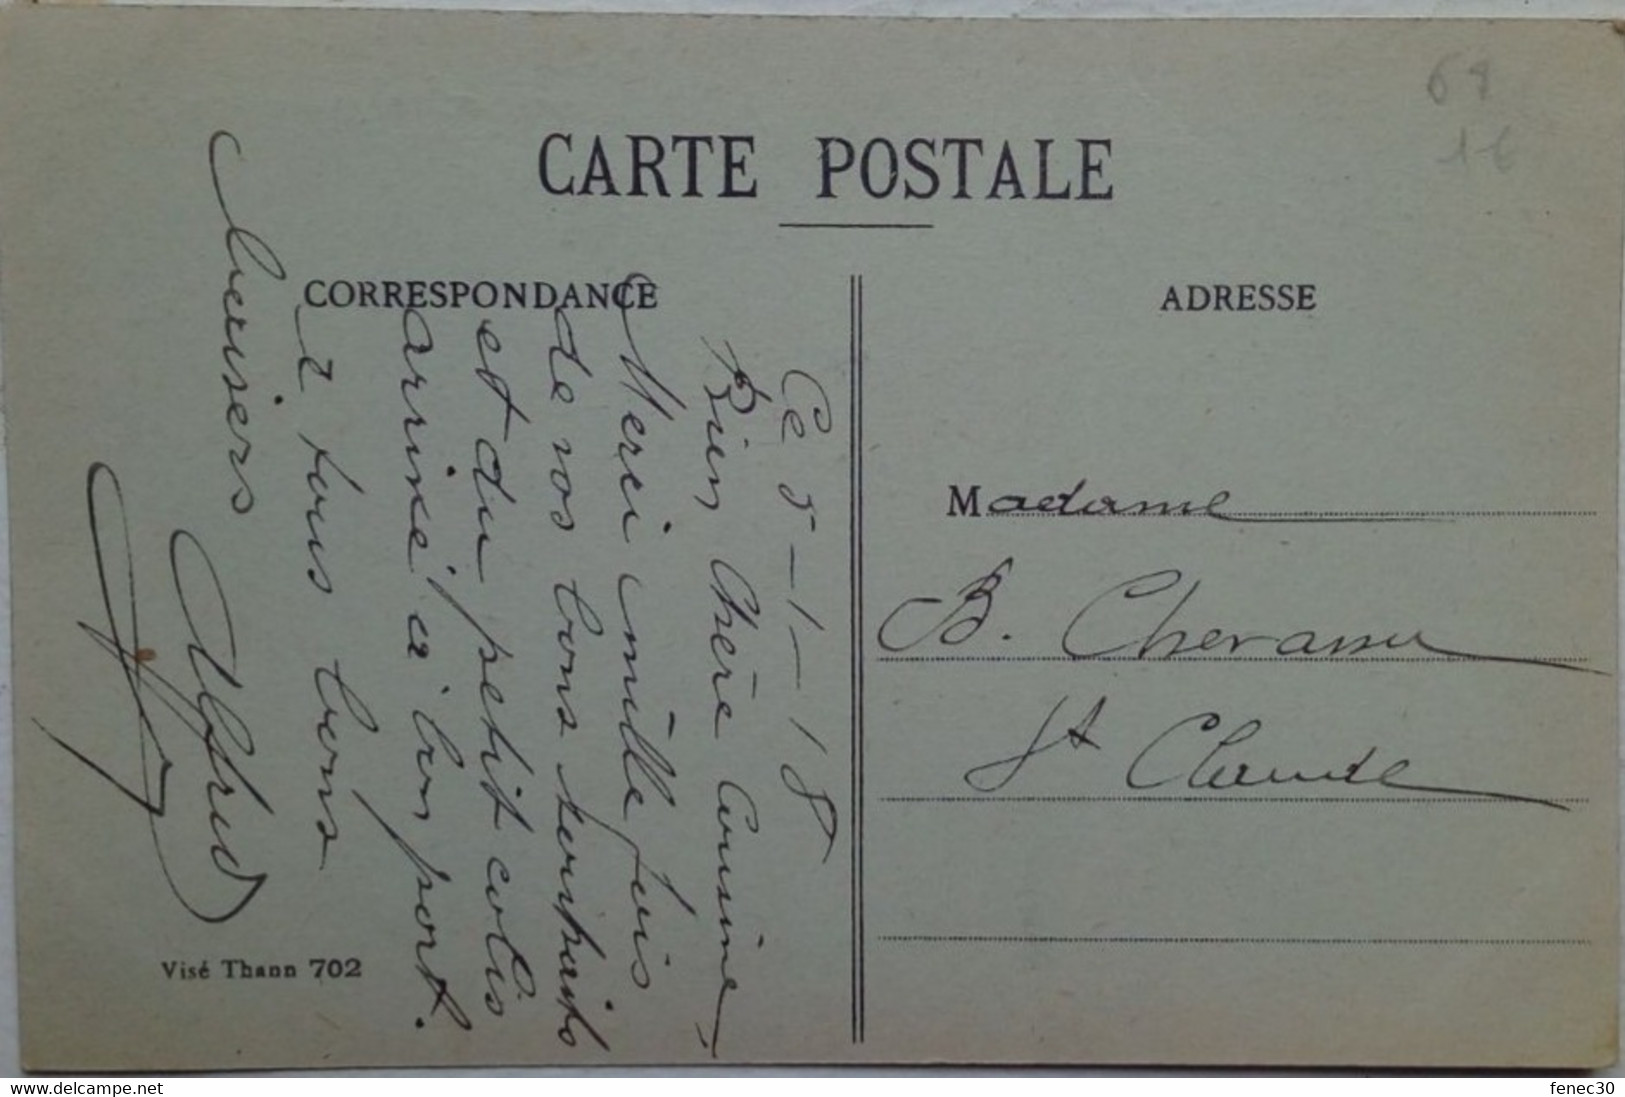 CARTE POSTALE
CORRESPONDANCE
Ce 8-1-18
Bien Chère Cousine,
Merci mille fois
de vos bons souhaits
et du petit colis
arrivé à bon port.
à tous bons
baisers
Alfred
ADRESSE
Madame
B. Chevassu
St Claude
Visé Thann 702
www.delcampe.net
fenec30